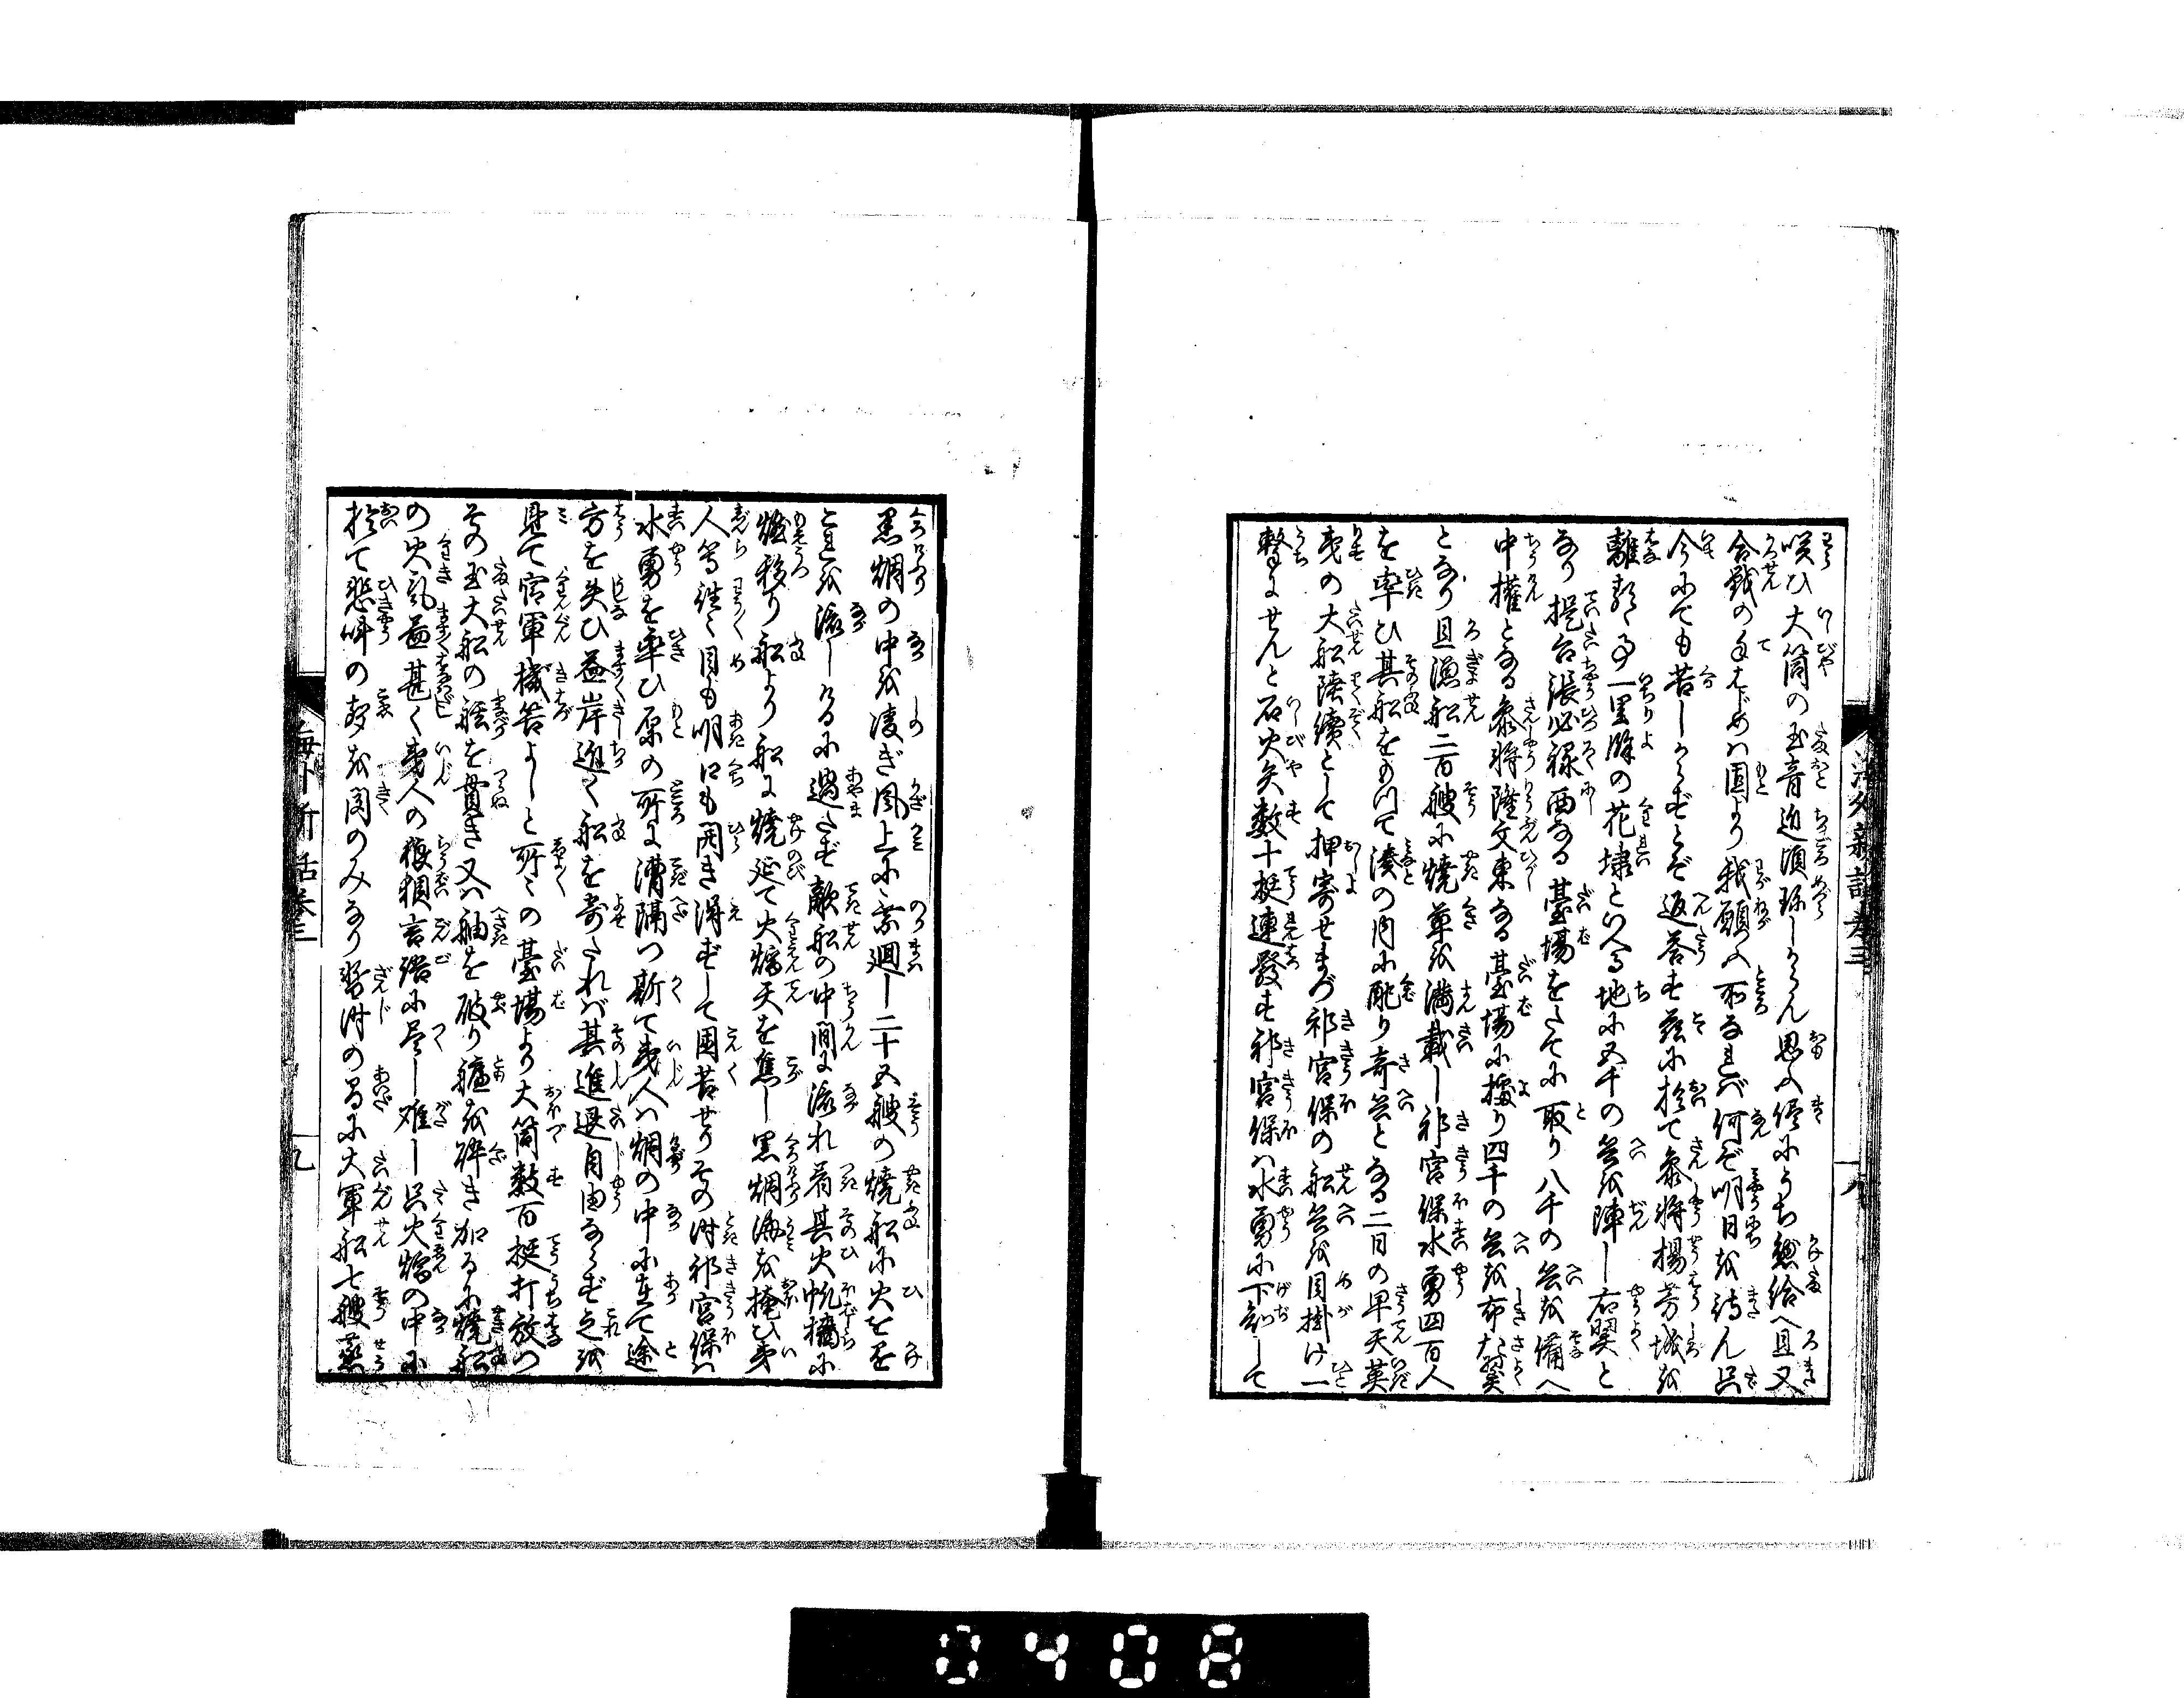 咲ひ大筒の玉音近頃珎しからん思の儘にうち懸給へ且又
合戦の手はじめは固より我願ふ所なれば何ぞ明日を待ん只
今にても苦しからずとぞ返答す茲に於て参将楊芳城を
離るゝ事一里餘の花埭といふ地に五千の兵を陣し右翼と
なり提台張必禄西なる臺場をたてに取り八千の兵を備へ
中權となる参将隆文東なる臺場に據り四千の兵を布左翼
となり且漁船二百艘に焼草を満載し祁宮保水勇四百人
を率ひ其船をわけて湊の内に配り奇兵となる二日の早天英
夷の大船陸續として押寄せまづ祁宮保の船兵を目掛け一
撃にせんと石火矢数十挺連發す祁宮保は水勇に下知して
黒烟の中を凌ぎ風上に乗廻し二十五艘の焼船に火をを
これを流しけるに過たず敵船の中間に流れ着其火帆檣に
燃移り船より船に焼延て火焔天を焦し黒烟海を掩ひ夷
人等往々目も明口も開き得ずして困苦せりその時祁宮保は
水勇を率ひ原の所に漕隔つ斯て夷人は烟の中に在て途
方を失ひ益岸近く船を寄たれば其進退自由ならず之を
見て官軍機筈よしと所々の臺場より大筒数百挺打放つ
その玉大船の舷を貫き又は舳を破り艫を碎き加るに焼船
の火氣益甚く夷人の狼狽言語に尽し難し只火焔の中に
於て悲叫の声を聞のみなり暫時の間に大軍船七艘蒸
海外新話巻三
八
海外新話巻三
九
0408